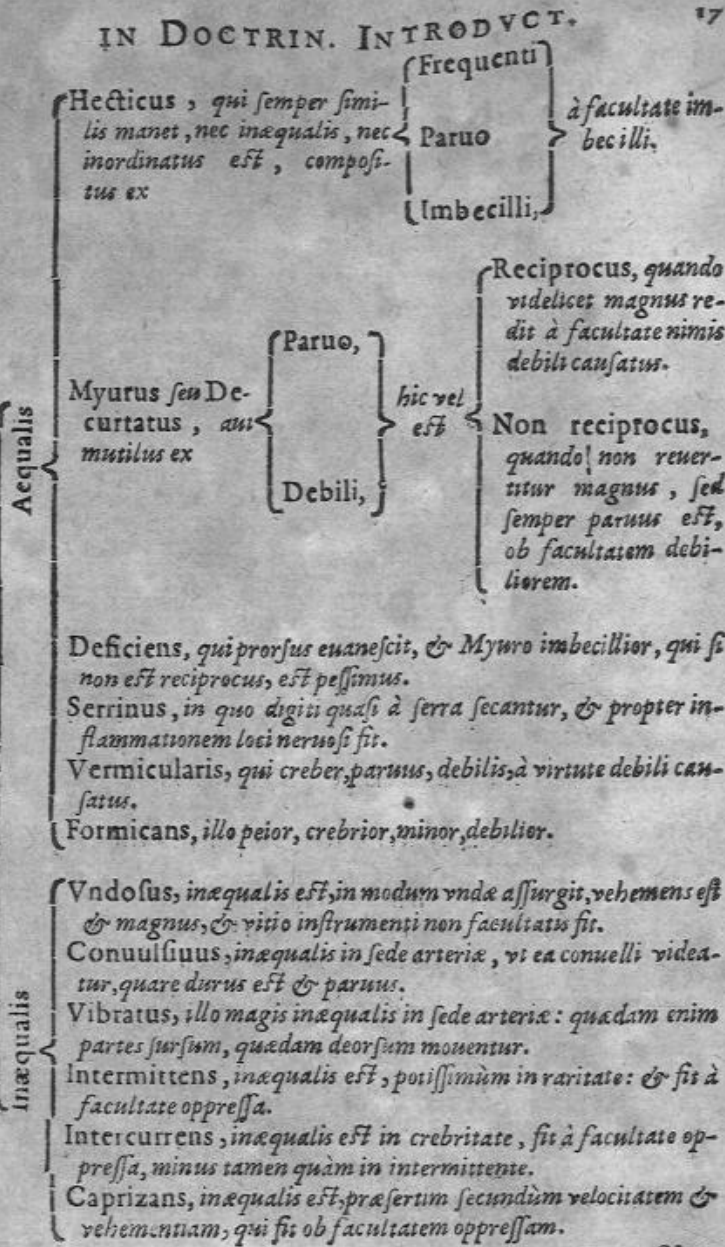 IN DOCTRIN. INTRODVCT. 17
Aequalis
Hecticus, qui semper simi-
lis manet, nec inæqualis, nec
inordinatus est, composi-
tus ex
Frequenti
Paruo
Imbecilli,
à facultate im-
becilli.
Myurus seu De-
curtatus, aut
mutilus ex
Paruo,
Debili,
hic vel
est
Reciprocus, quando
videlicet magnus re-
dit à facultate nimis
debili causatus.
Non reciprocus,
quando non reuer-
titur magnus, sed
semper paruus est,
ob facultatem debi-
liorem.
Deficiens, qui prorsus euanescit, & Myuro imbecillior, qui si
non est reciprocus, est pessimus.
Serrinus, in quo digiti quasi à serra secantur, & propter in-
flammationem loci neruosi fit.
Vermicularis, qui creber, paruus, debilis, à virtute debili cau-
satus.
Formicans, illo peior, crebrior, minor, debilior.
Inæqualis
Vndosus, inæqualis est, in modum vndæ assurgit, vehemens est
& magnus, & vitio instrumenti non facultatis fit.
Conuulsiuus, inæqualis in sede arteriæ, vt ea conuelli videa-
tur, quare durus est & paruus.
Vibratus, illo magis inæqualis in sede arteriæ: quædam enim
partes sursum, quædam deorsum mouentur.
Intermittens, inæqualis est, potissimùm in raritate: & fit à
facultate oppressa.
Intercurrens, inæqualis est in crebritate, fit à facultate op-
pressa, minus tamen quàm in intermittente.
Caprizans, inæqualis est, præsertim secundùm velocitatem &
vehementiam, qui fit ob facultatem oppressam.